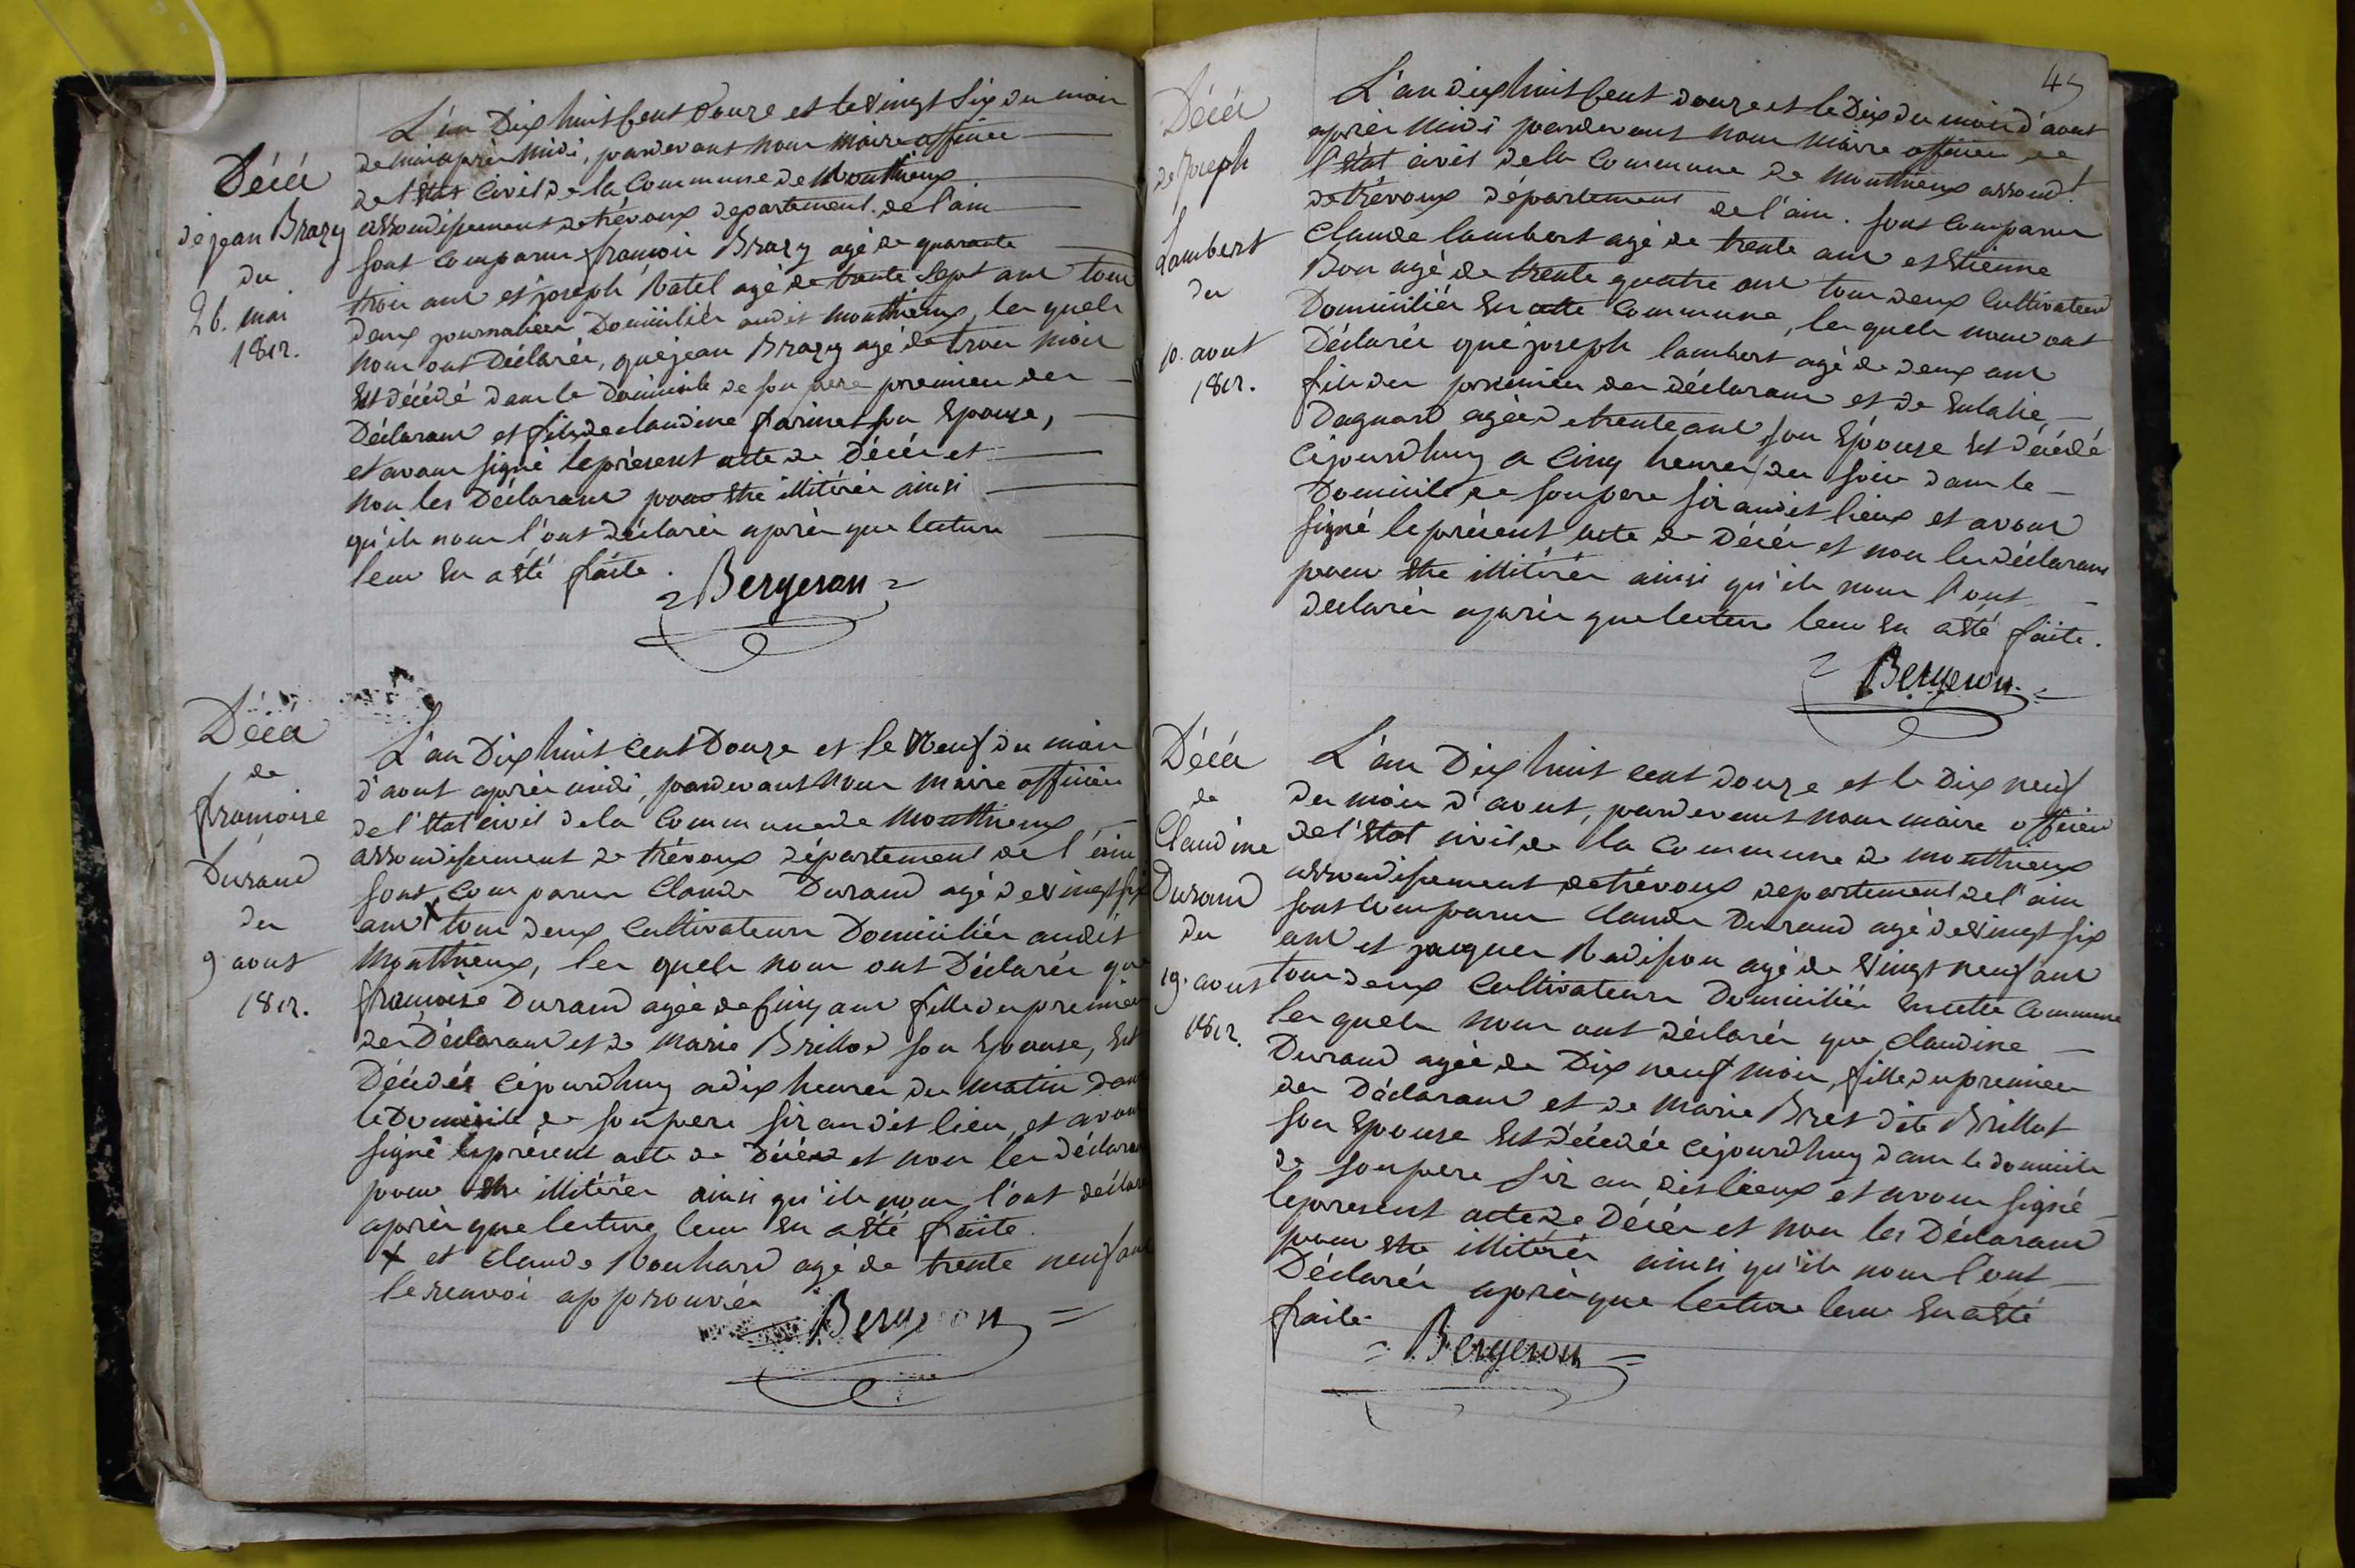 Décès
de jean Brazy
du
26. mai
1812.
L'an Dix huit Cent Douze et le Vingt Six du mois
de mai après midi, pardevant nous maire officier
de l'Etat Civil de la Commune de Monthieux
arrondissement de trévoux departement de l'ain
sont comparus françois Brazy agé de quarante
trois ans et joseph Ratel agé de trante Sept ans tous
deux journaliers Domiciliés audit monthieux, les quels
nous ont Déclarés, que jean Brazy agé de trois mois
Est décédé dans le Domicile de son pere premier des
Déclarans et fils de claudine farinet son Epouse,
et avons signé le présent acte de Décès et
non les Déclarans pour Etre illitérés ainsi
qu'ils nous l'ont déclarés après que lecture
leur En a Eté faite.
Bergeron
Décès
de
françoise
Durand
du
9 aout
1812.
L'an Dix huit Cent Douze et le Neuf du mois
d'aout après midi, pardevant Nous maire officier
de l'Etat civil de la Commune de Monthieux,
arrondissement de trévoux département de l'ain
sont comparus Claude Durand agé de Vingt six
ans X tous deux Cultivateurs Domiciliés audit
Monthieux, les quels nous ont Déclarés que
françoise Durand agée de Cinq ans fille du premier
des Déclarans et de Marie Brillod son Epouse, Est
Décédés cejourdhuy a dix heures du matin dans
le Domicile de son pere sis audit lieu, et avons
signé le présent acte de Décès et non les déclarans
pour Etre illitérés ainsi qu'ils nous l'ont déclarés
après que lecture leur En a Eté faite.
X et Claude Rouhard agé de trente neuf ans
le renvoi approuvés
Bergeron
45
Décès
de joseph
Lambert
du
10. aout
1812.
L'an dix huit Cent douze et le Dix du mois d'aout
après midi pardevant nous maire officier de
l'Etat civil de la Commune de monthieux arrond.t
de trévoux département de l'ain. sont comparus
Claude lambert agé de trente ans et Etienne
Bon agé de trente quatre ans tous deux Cultivateurs
Domiciliés En cette Commune, les quels nous ont
Déclarés que joseph lambert agé de deux ans
fils du premier des déclarans et de Eulalie
Daguard agée de trente ans son Epouse Est décédé
Cejourdhuy a Cinq heures du soir dans le
Domicile de son pere sis audit lieux et avons
signé le présent acte de Décès et non les déclarans
pour Etre illitérés ainsi qu'ils nous l'ont
declarés après que lecture leur En a Eté faite.
Bergeron
Décès
de
Claudine
Durand
du
19. aout
1812.
L'an Dix huit cent douze et le Dix neuf
du mois d'aout, pardevant nous maire officier
de l'Etat civil de la Commune de monthieux
arrondissement de trévoux departement de l'ain
sont comparus Claude Durand agé de Vingt six
ans et jacques Radisson agé de Vingt neuf ans
tous deux Cultivateurs Domiciliés En cette Commune
les quels nous ont déclarés que Claudine
Durand agée de Dix neuf mois, fille du premier
des Déclarans et de Marie Bret dite Brillot
son Epouse Est décédée cejourdhuy dans le domicile
de son pere sis au dit lieux et avons signé
le present acte de Décès et non les Déclarans
pour Etre illitérés ainsi qu'ils nous l'ont
Déclarés après que lecture leur En a Eté
faite.
Bergeron